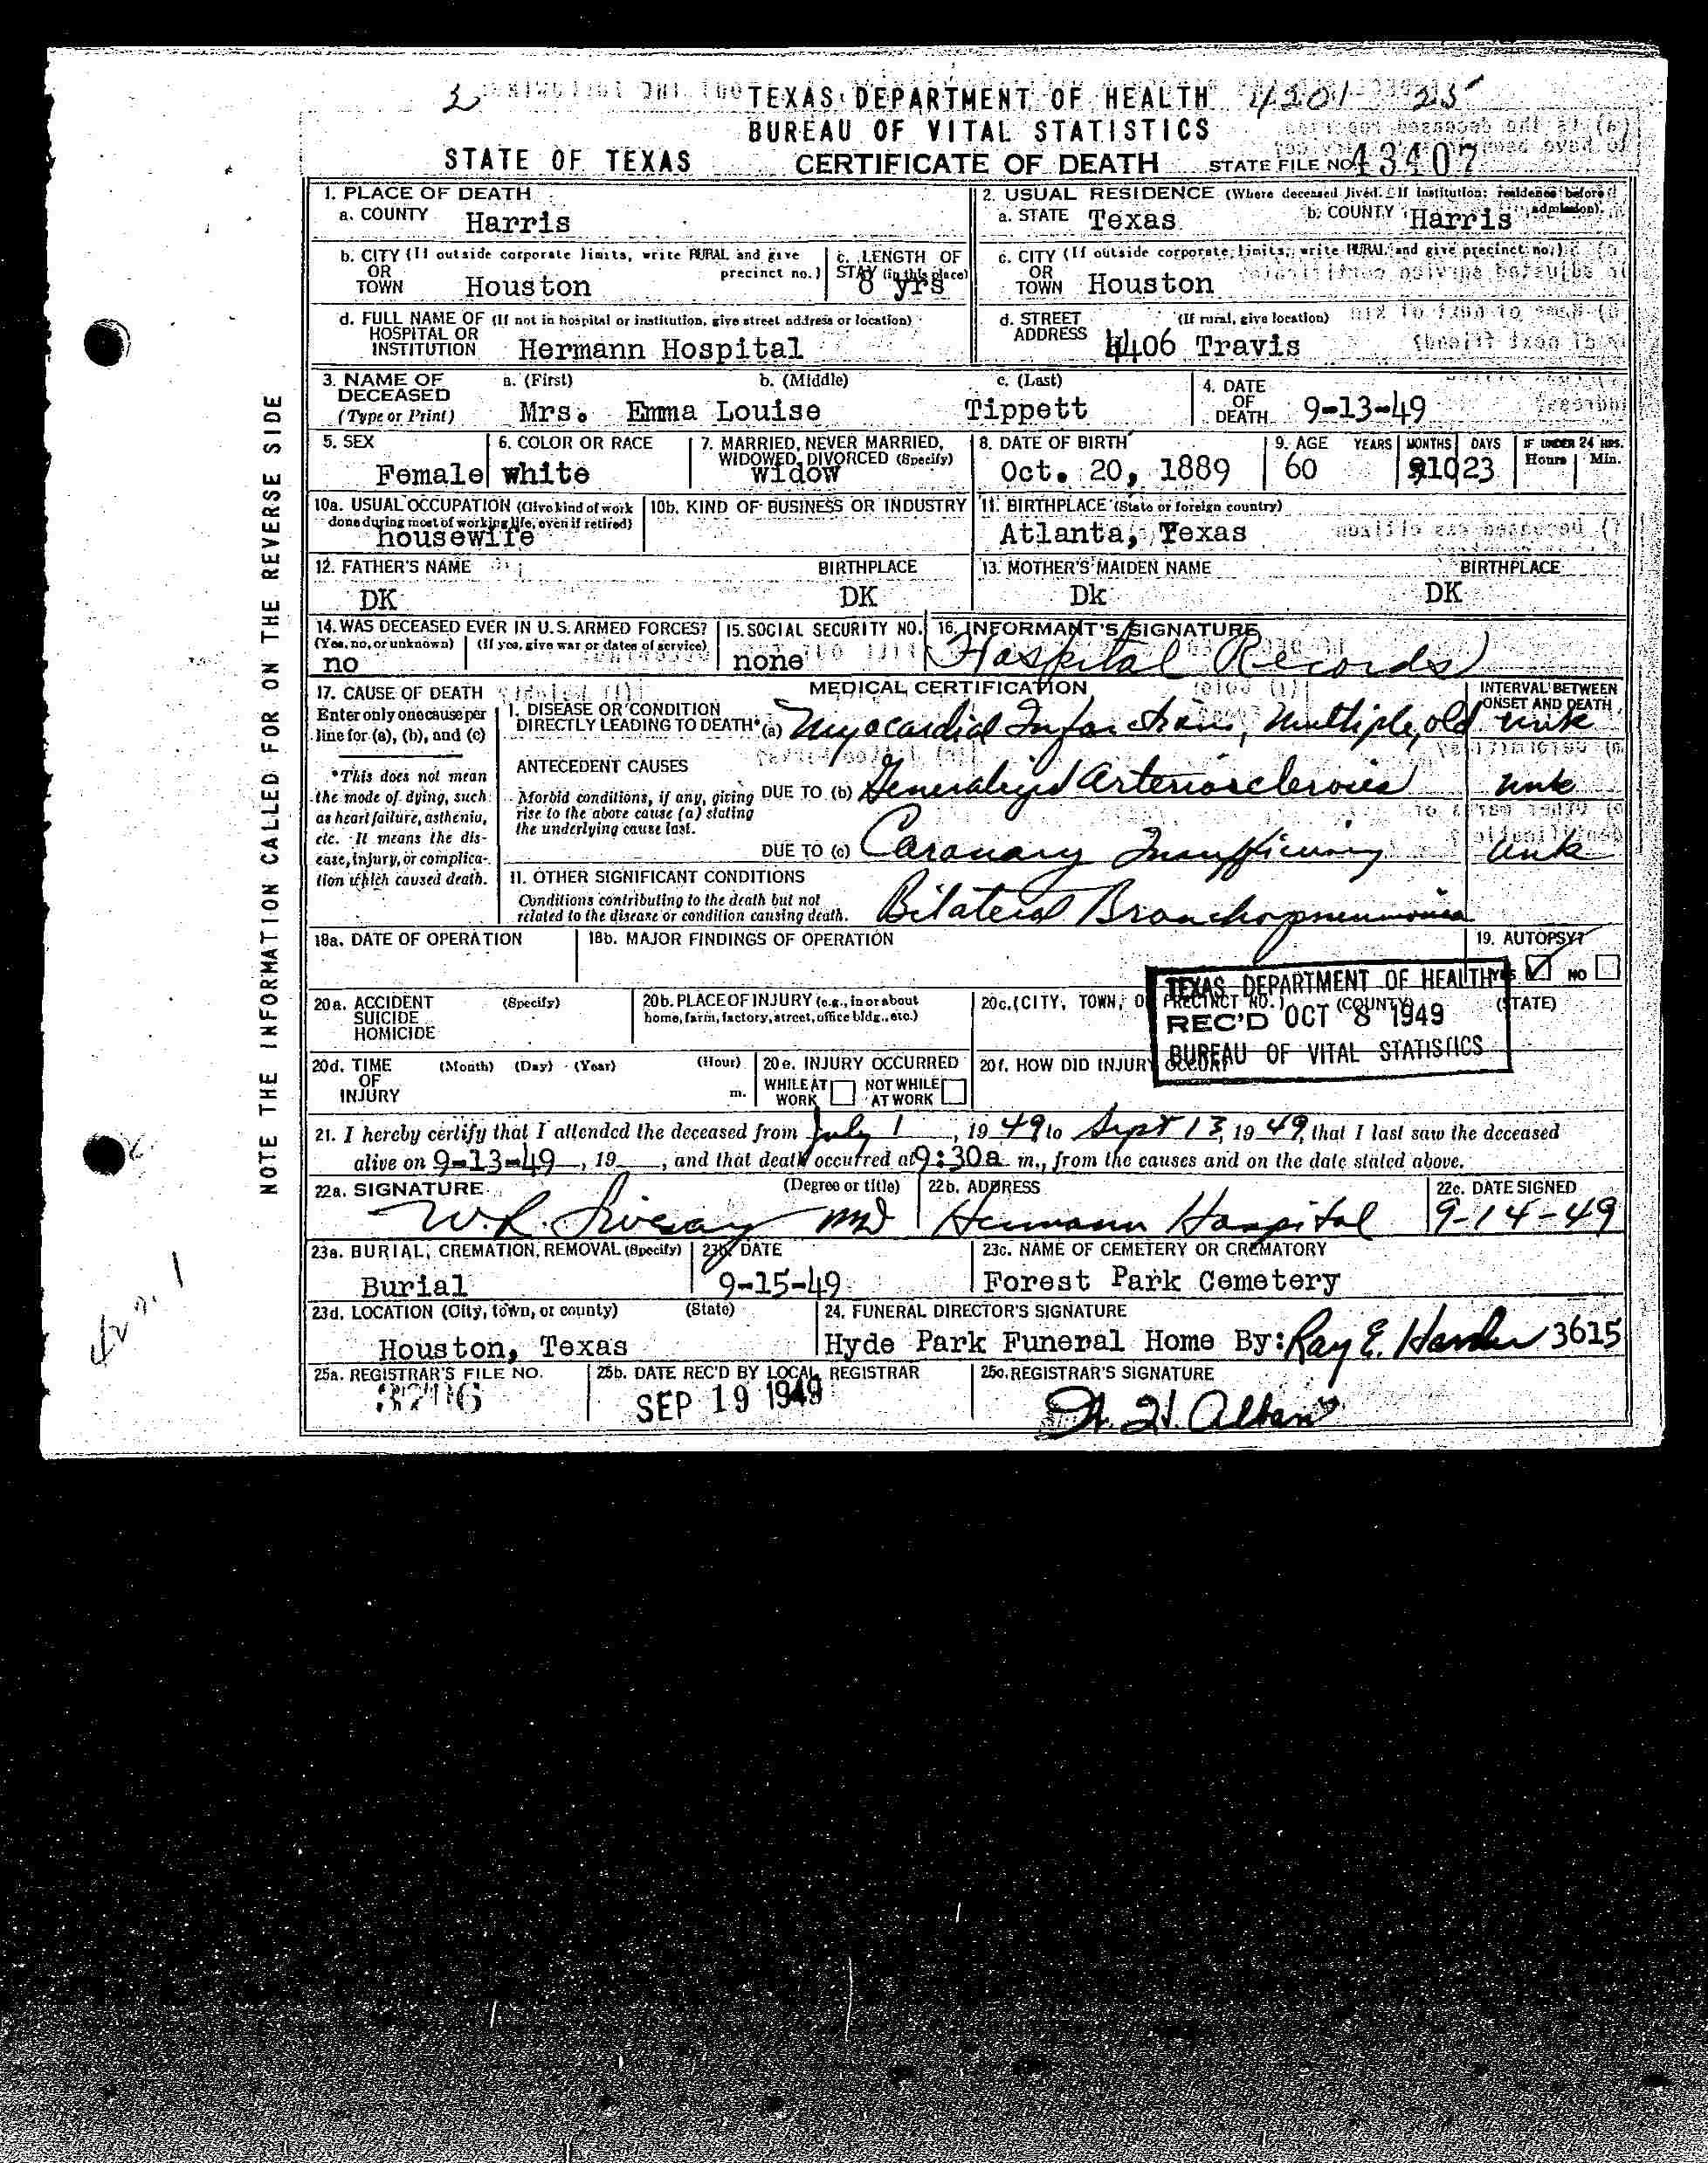 TEXAS DEPARTMENT OF HEALTH 4201 25
BUREAU OF VITAL STATISTICS
STATE OF TEXAS CERTIFICATE OF DEATH STATE FILE NO. 43407
NOTE THE INFORMATION CALLED FOR ON THE REVERSE SIDE
1. PLACE OF DEATH
a. COUNTY Harris
2. USUAL RESIDENCE (Where deceased lived. If institution: residence before admission).
a. STATE Texas b. COUNTY Harris
b. CITY (If outside corporate limits, write RURAL and give precinct no.) OR TOWN Houston
c. LENGTH OF STAY (in this place) 8 yrs
c. CITY (If outside corporate limits, write RURAL and give precinct no.) OR TOWN Houston
d. FULL NAME OF HOSPITAL OR INSTITUTION (If not in hospital or institution, give street address or location) Hermann Hospital
d. STREET ADDRESS (If rural, give location) 4406 Travis
3. NAME OF DECEASED (Type or Print) a. (First) b. (Middle) c. (Last)
Mrs. Emma Louise Tippett
4. DATE OF DEATH 9-13-49
5. SEX Female
6. COLOR OR RACE white
7. MARRIED, NEVER MARRIED, WIDOWED, DIVORCED (Specify) widow
8. DATE OF BIRTH Oct. 20, 1889
9. AGE YEARS MONTHS DAYS IF UNDER 24 HRS. Hours Min.
60 10 23
10a. USUAL OCCUPATION (Give kind of work done during most of working life, even if retired) housewife
10b. KIND OF BUSINESS OR INDUSTRY
11. BIRTHPLACE (State or foreign country) Atlanta, Texas
12. FATHER'S NAME BIRTHPLACE
DK DK
13. MOTHER'S MAIDEN NAME BIRTHPLACE
Dk DK
14. WAS DECEASED EVER IN U.S. ARMED FORCES? (Yes, no, or unknown) (If yes, give war or dates of service)
no
15. SOCIAL SECURITY NO. none
16. INFORMANT'S SIGNATURE
Hospital Records
17. CAUSE OF DEATH
Enter only one cause per line for (a), (b), and (c)
*This does not mean the mode of dying, such as heart failure, asthenia, etc. It means the disease, injury, or complication which caused death.
MEDICAL CERTIFICATION
INTERVAL BETWEEN ONSET AND DEATH
I. DISEASE OR CONDITION DIRECTLY LEADING TO DEATH* (a) Myocardial Infarctions, Multiple, old unk
ANTECEDENT CAUSES
Morbid conditions, if any, giving rise to the above cause (a) stating the underlying cause last.
DUE TO (b) Generalized Arteriosclerosis unk
DUE TO (c) Coronary Insufficiency unk
II. OTHER SIGNIFICANT CONDITIONS
Conditions contributing to the death but not related to the disease or condition causing death.
Bilateral Bronchopneumonia
18a. DATE OF OPERATION
18b. MAJOR FINDINGS OF OPERATION
19. AUTOPSY? YES NO
20a. ACCIDENT SUICIDE HOMICIDE (Specify)
20b. PLACE OF INJURY (e.g., in or about home, farm, factory, street, office bldg., etc.)
20c. (CITY, TOWN, OR PRECINCT NO.) (COUNTY) (STATE)
TEXAS DEPARTMENT OF HEALTH
REC'D OCT 8 1949
BUREAU OF VITAL STATISTICS
20d. TIME OF INJURY (Month) (Day) (Year) (Hour) m.
20e. INJURY OCCURRED WHILE AT WORK NOT WHILE AT WORK
20f. HOW DID INJURY OCCUR?
21. I hereby certify that I attended the deceased from July 1, 1949 to Sept 13, 1949, that I last saw the deceased
alive on 9-13-49, 19 , and that death occurred at 9:30a m., from the causes and on the date stated above.
22a. SIGNATURE (Degree or title)
W.R. Livesay MD
22b. ADDRESS
Hermann Hospital
22c. DATE SIGNED
9-14-49
23a. BURIAL, CREMATION, REMOVAL (Specify)
Burial
23b. DATE
9-15-49
23c. NAME OF CEMETERY OR CREMATORY
Forest Park Cemetery
23d. LOCATION (City, town, or county) (State)
Houston, Texas
24. FUNERAL DIRECTOR'S SIGNATURE
Hyde Park Funeral Home By: Ray E. Harder 3615
25a. REGISTRAR'S FILE NO.
25b. DATE REC'D BY LOCAL REGISTRAR
SEP 19 1949
25c. REGISTRAR'S SIGNATURE